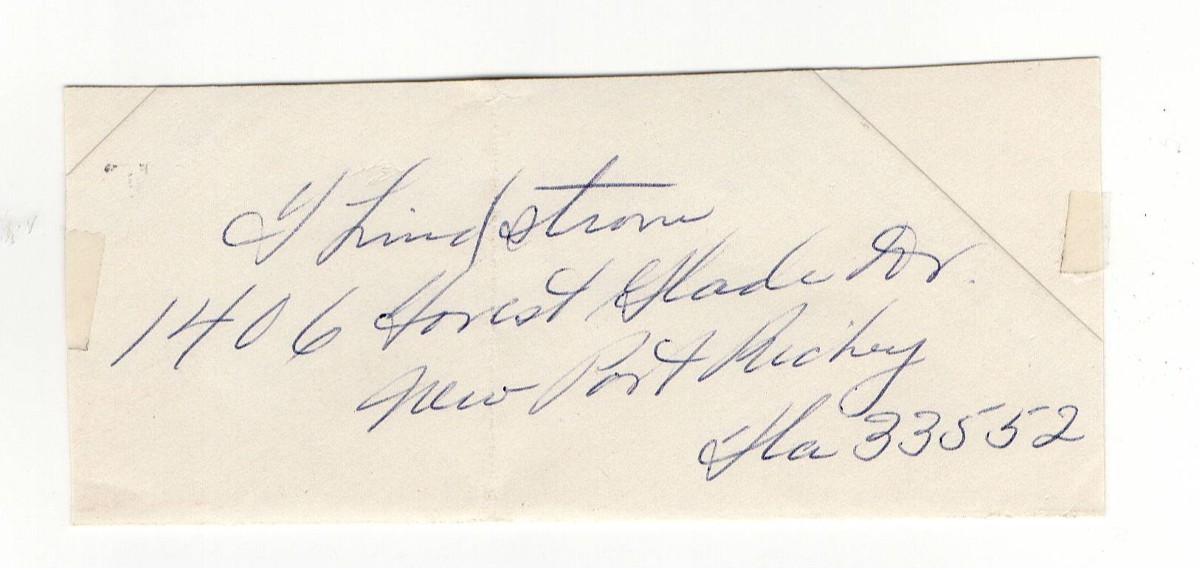 G Lindstrom
1406 Forest Glade Dr.
New Port Richey
Fla 33552